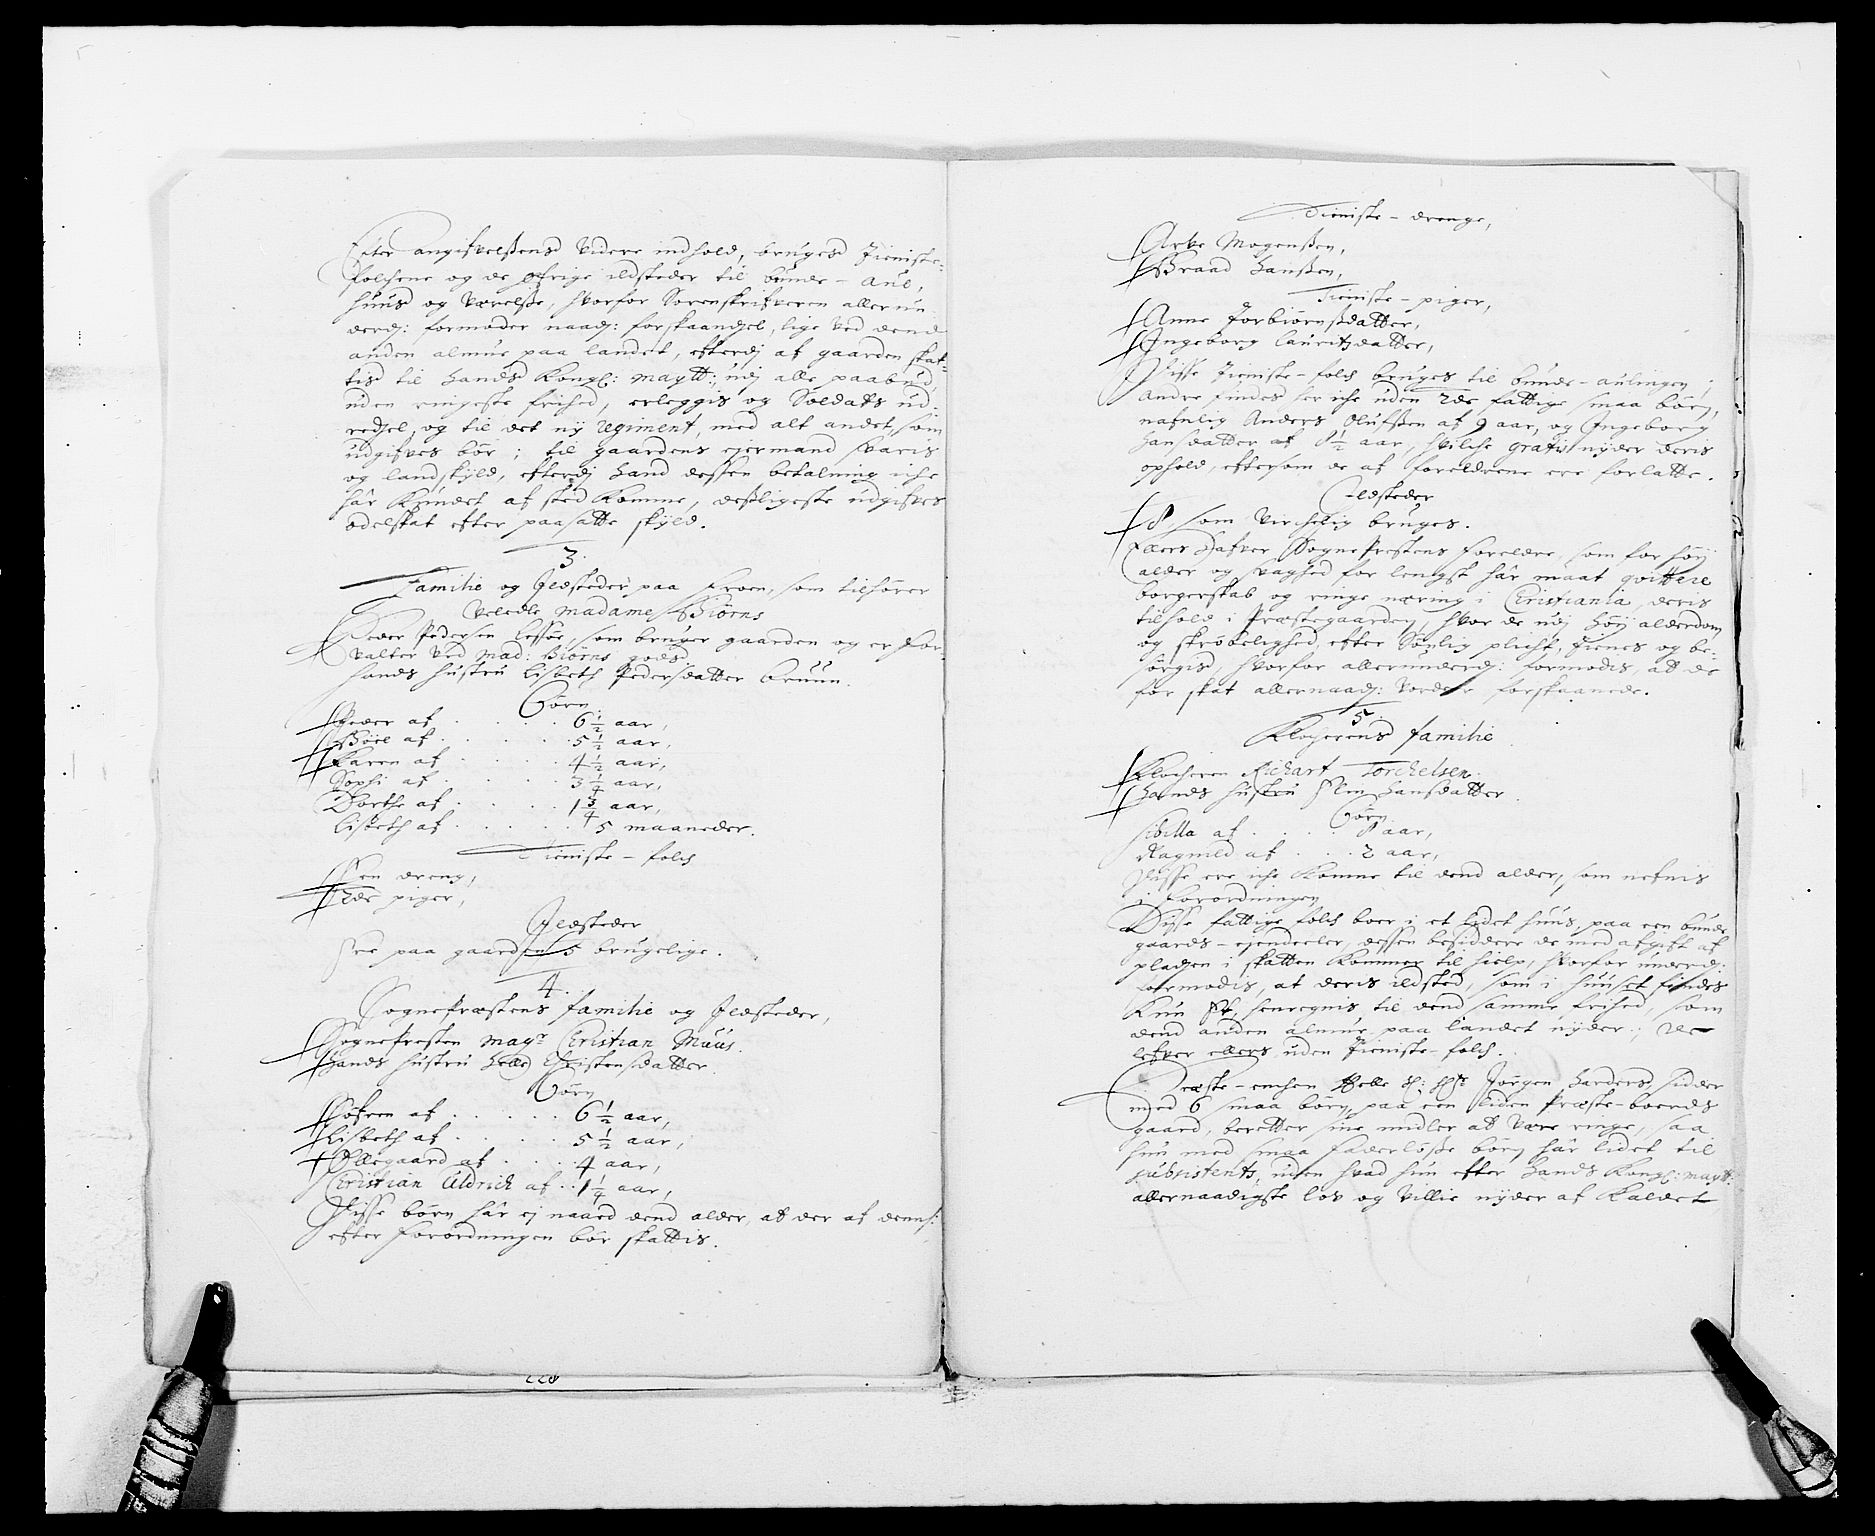 Efter angifvelßens videre indhold, bruges Tieniste-
folchene og de øfrige ildsteder til bunde-aul,
huus og værelße, hvorfor Sorenskrifveren allerun
derd: formoder naad: forskaandsel, lige ved dend
anden almue paa landet, efterdj af gaarden skat-
tis til hands Kongl: maytt:, udj alle paabud,
uden ringeste frihed, erleggis og Soldats ud
redsel, og til det nÿ regiment, med alt andet, som
udgifves bør; til gaardens ejermand svaris
og landskÿld, efterdj hand dessen betalning iche
hâr kundet af sted komme, desligeste udgifves
odelskat efter paasatte skÿld.
3.
Familie og Ildsteder paa Froen, som tilhører
Veledle Madame Biørns
Peder Pedersen Lessøe, som bruger gaarden og er For-
valter ved Mad: Biørns godss
hands hustru Lisbeth Pedersdatter Bruun.
Børn
Peder af . . . . 6 1/2 aar,
Bóel af . . . . 5 1/2 aar,
Karen af . . . . 4 1/2 aar,
Sophi af . . . . 3 1/4 aar,
Dorthe af . . . . 1 3/4 aar,
Lisbeth af . . . . 5 maaneder.
Tieniste-folch
Een dreng,
2de piger,
Ildsteder
Ere paa gaarden 5 brugelige.
4.
Sognepræstens familie og Ildsteder,
Sognepresten Magr Christian Muus.
hands hustru Helle Christensdatter
Børn
Søfren af . . . . 6 1/2 aar,
Lisbeth af . . . . 5 1/2 aar,
Ollegaard af . . . 4 aar,
Christian Uldrich af . . 1 1/4 aar,
Disse børn hâr ej naaed dend alder, at der af dennem
efter forordningen bør skattis.
228
Tieniste-drenge,
Arve Mogenßen,
Braad Hanßen,
Tieniste-piger,
Anne Torbiørnßdatter,
Ingeborg Lauritzdatter,
Disse Tieniste-folch bruges til bunde-aulingen;
Andre findes her iche uden 2de fattige smaa børn,
nafnlig Anders Olufsen af 9 aar, og Ingeborg
Hansdatter af 8 1/2 aar, hvilche gratis nyder deris
ophold, eftersom de af foreldrene ere forlatte.
Ildsteder
8 som virchelig bruges.
Ellers hafver SognePrestens foreldre, som for høÿ
alder og svaghed for lengst hâr maat qvittere
borgerskab og ringe næring i Christiania, deris
tilhold i Præstegaarden, hvor de udj høÿ alderdom
og skrøbelighed, efter Sønlig plicht, tienes og be-
sørgis, hvorfor allerunderd: formodis, at de
for skat allernaad: vorder forskaanede.
5.
Klocherens familie
Klocheren Richart Torchelsen.
hands hustru Elin Hansdatter.
Børn.
Sibilla af . . . . 8 aar,
Ragnild af . . . 2 aar,
Disse ere iche komne til dend alder, som nefnis
i forordningen
Disse fattige folch boer i et lidet huus, paa een bunde
gaards-ejendeeler, dessen besiddere de med afgift af
pladsen i skatten kommer til hielp, hvorfor underd:
formodis, at deris ildsted, som i huuset findes
kun Et, henregnis til dend samme frihed, som
dend anden almue paa landet nyder; De
lefver ellers uden Tieniste-folch.
Præste-enchen Helle Jørgen Harders, sidder
med 6 smaa børn, paa een liden Præste-boends
gaard, beretter sine midler at være ringe, saa
hun med smaa faderløße børn hâr lidet til
subsistents, uden hvad hun efter Hands Kongl: mayt:
allernaadigste lov og villie nyder af Kaldet